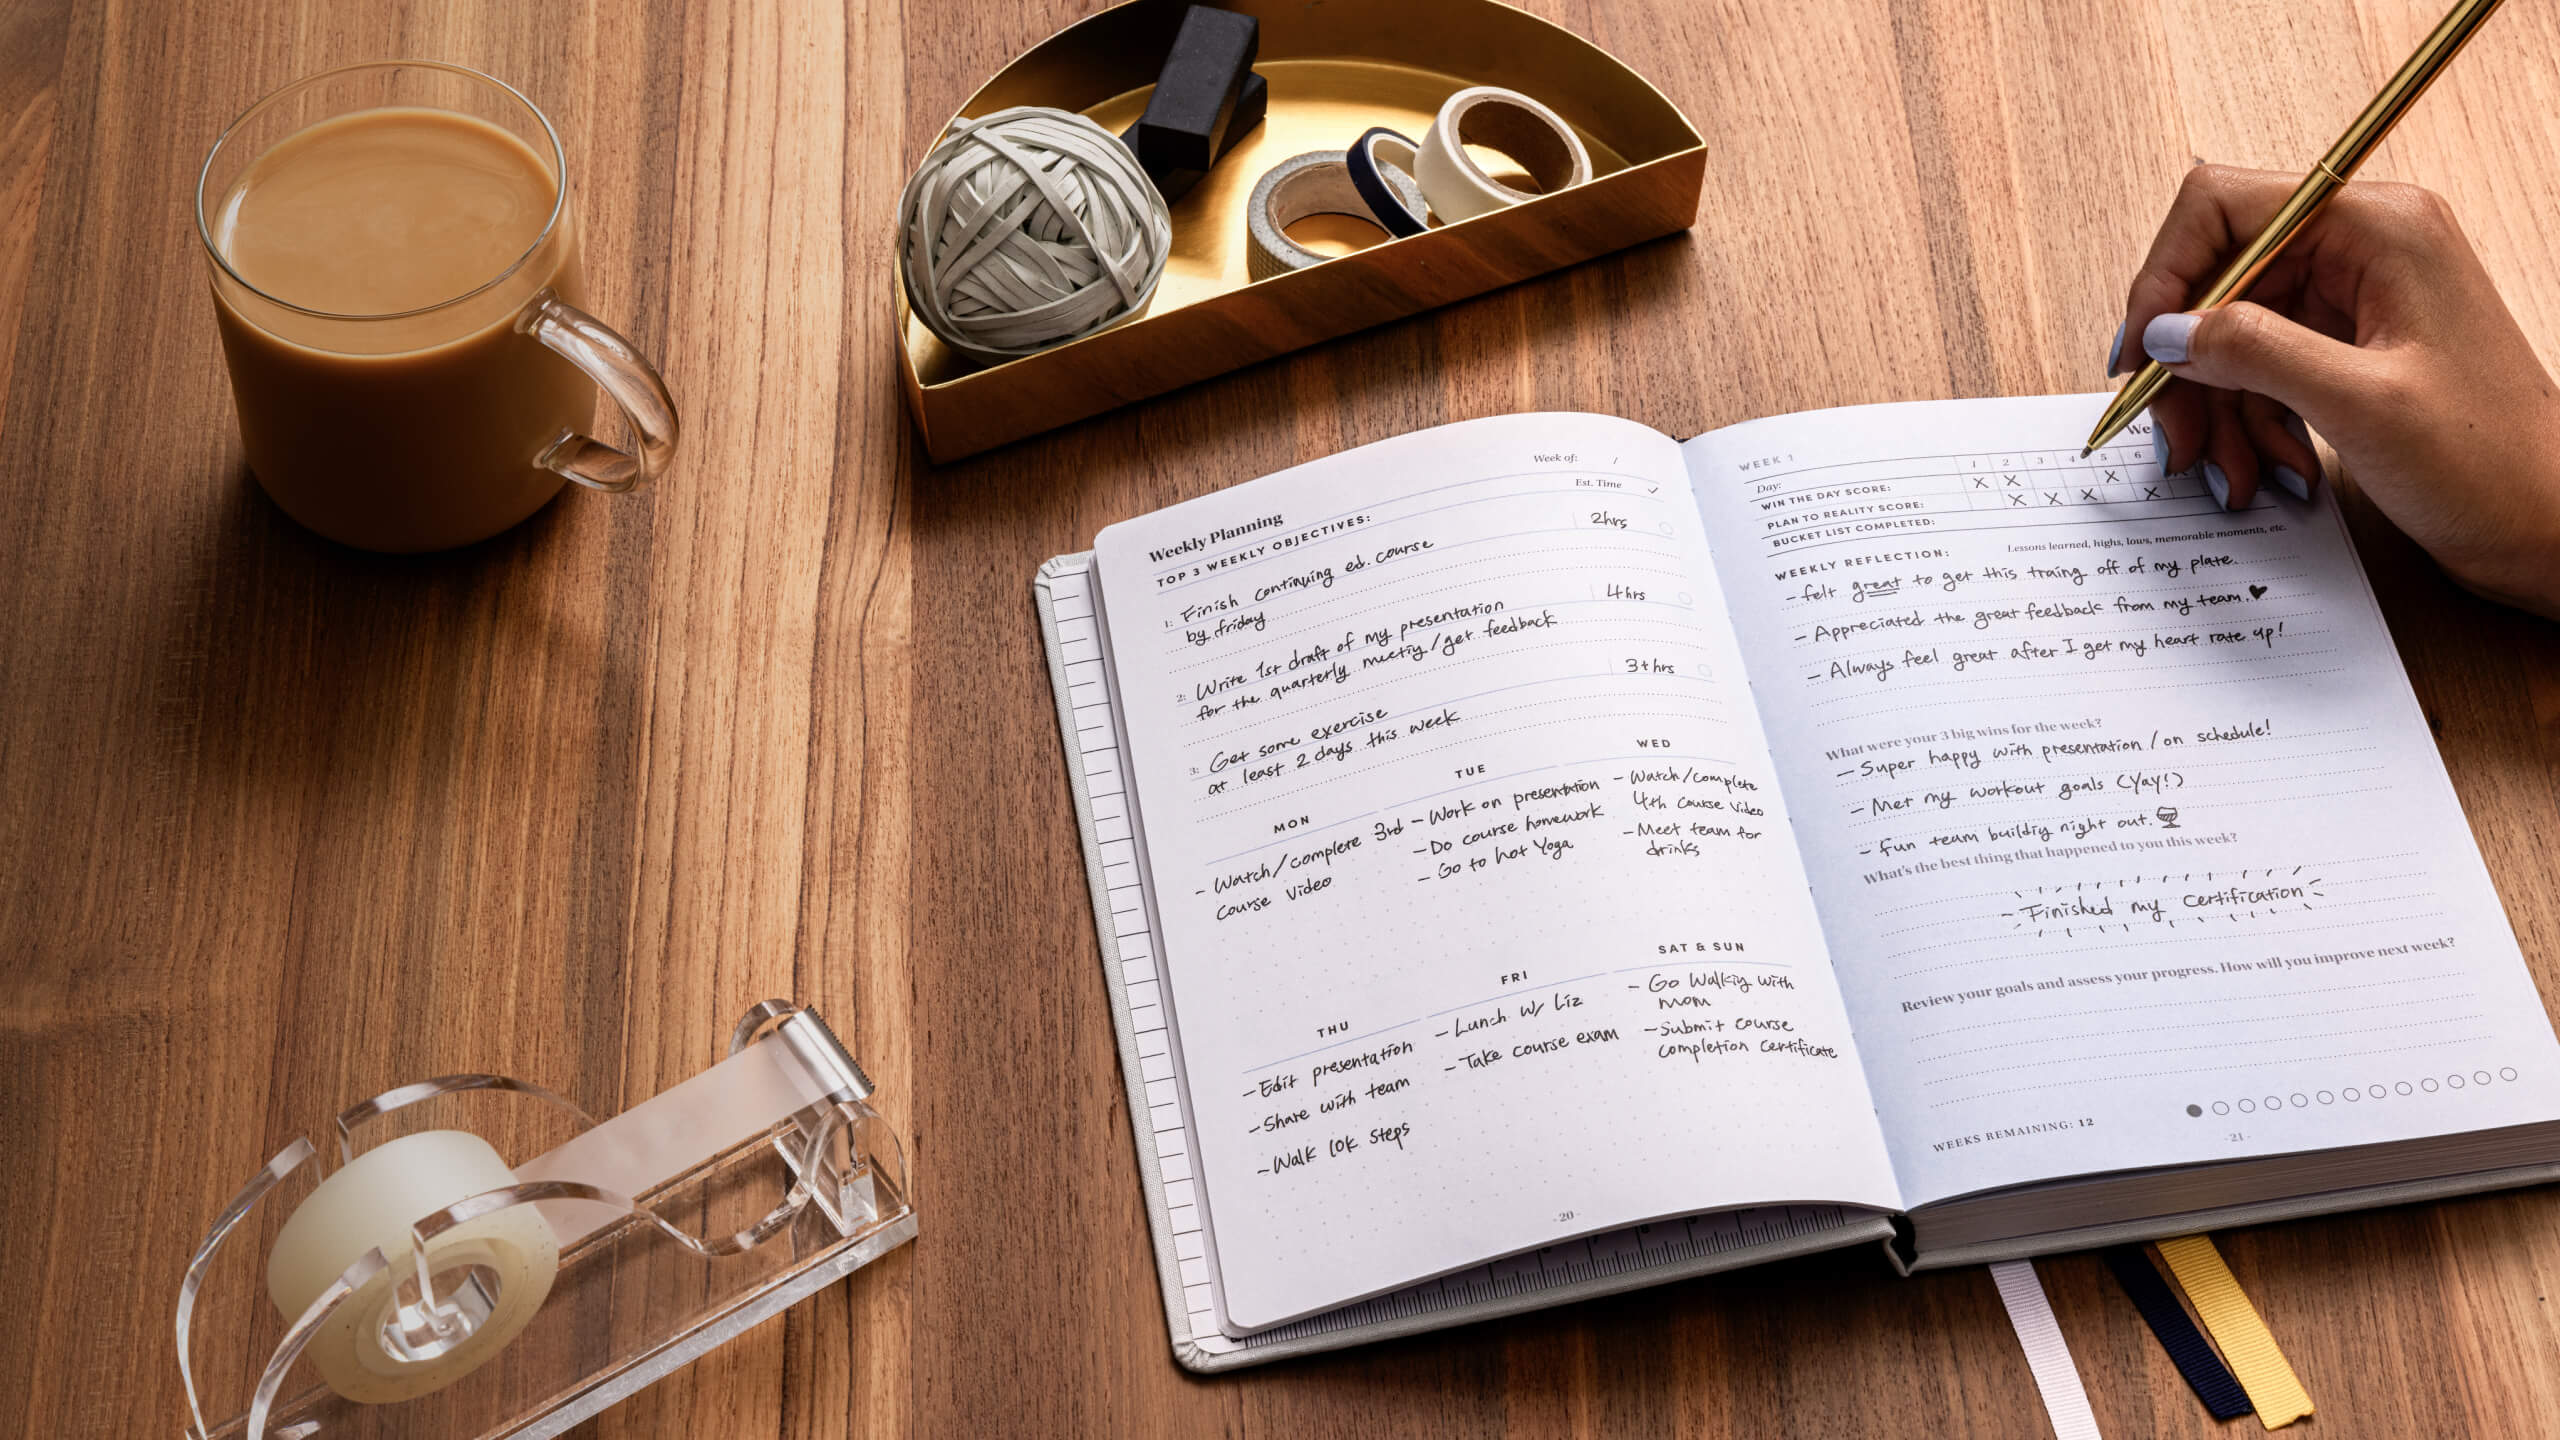 Weekly Planning
Week of: /
TOP 3 WEEKLY OBJECTIVES:
Est. Time ✓
1: Finish continuing ed. course
by friday
2hrs
2: Write 1st draft of my presentation
for the quarterly meetig/get feedback
4hrs
3: Get some exercise
at least 2 days this week
3+hrs
MON
- Watch/complete 3rd
course video
TUE
- Work on presentation
- Do course homework
- Go to hot Yoga
WED
- Watch/complete
4th course video
- Meet team for
drinks
THU
- Edit presentation
- Share with team
- Walk 10k steps
FRI
- Lunch w/ Liz
- Take course exam
SAT & SUN
- Go Walkig with
mom
- Submit course
completion certificate
- 20 -
WEEK 1
Day: 1 2 3 4 5 6
WIN THE DAY SCORE: X X X
PLAN TO REALITY SCORE: X X X X
BUCKET LIST COMPLETED:
WEEKLY REFLECTION:
Lessons learned, highs, lows, memorable moments, etc.
- felt great to get this traing off of my plate.
- Appreciated the great feedback from my team. ♥
- Always feel great after I get my heart rate up!
What were your 3 big wins for the week?
- Super happy with presentation / on schedule!
- Met my workout goals (Yay!)
- fun team buildig night out.
What's the best thing that happened to you this week?
- Finished my certification -
Review your goals and assess your progress. How will you improve next week?
WEEKS REMAINING: 12
- 21 -